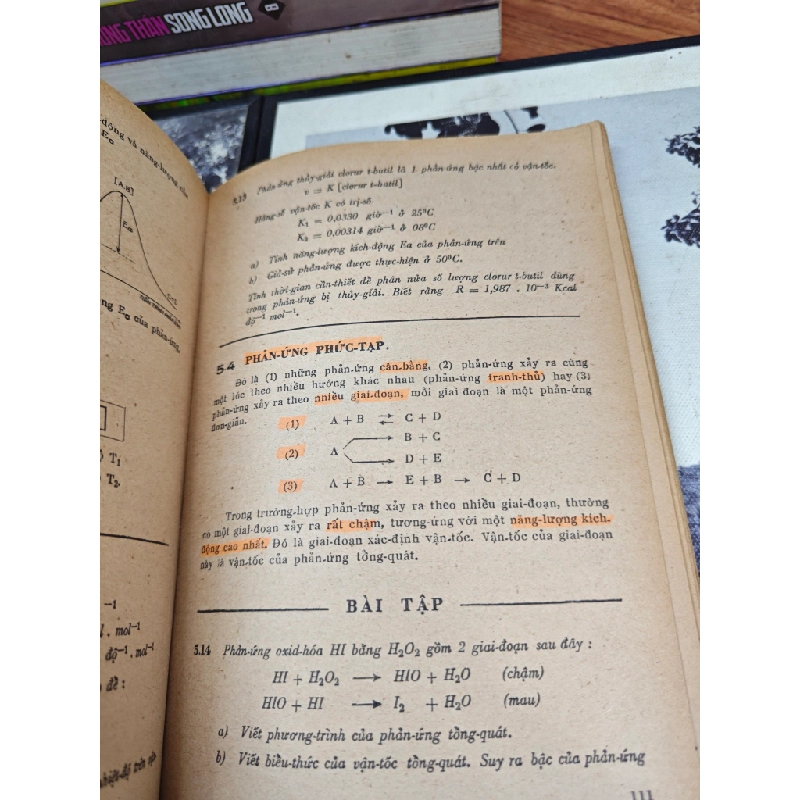 LONG THẦN SONG LONG 8
động và năng-lượng của
[A.B]
Ea
Ea của phản-ứng.
T₁
T₂.
-1
mol-1
độ-1, mol-1
đề :
5.13 Phản-ứng thủy-giải clorur t-butil là 1 phản-ứng bậc nhất có vận-tốc.
v = K [clorur t-butil]
Hằng-số vận-tốc K có trị-số
K₁ = 0,0330 giờ⁻¹ ở 25ºC
K₂ = 0,00314 giờ⁻¹ ở 0ºC
a) Tính năng-lượng kích-động Ea của phản-ứng trên
b) Giả-sử phản-ứng được thực-hiện ở 50ºC.
Tính thời-gian cần-thiết để phân nửa số lượng clorur t-butil dùng
trong phản-ứng bị thủy-giải. Biết rằng R = 1,987 . 10⁻³ Kcal
độ⁻¹ mol⁻¹.
5.4 PHẢN-ỨNG PHỨC-TẠP.
Đó là (1) những phản-ứng cân-bằng, (2) phản-ứng xảy ra cùng
một lúc theo nhiều hướng khác nhau (phản-ứng tranh-thủ) hay (3)
phản-ứng xảy ra theo nhiều giai-đoạn, mỗi giai đoạn là một phản-ứng
đơn-giản.
(1) A + B ⇄ C + D
→ B + C
(2) A
→ D + E
(3) A + B → E + B → C + D
Trong trường-hợp phản-ứng xảy ra theo nhiều giai-đoạn, thường
có một giai-đoạn xảy ra rất chậm, tương-ứng với một năng-lượng kích-
động cao nhất. Đó là giai-đoạn xác-định vận-tốc. Vận-tốc của giai-đoạn
này là vận-tốc của phản-ứng tổng-quát.
BÀI TẬP
5.14 Phản-ứng oxid-hóa HI bằng H₂O₂ gồm 2 giai-đoạn sau đây :
HI + H₂O₂ → HIO + H₂O (chậm)
HIO + HI → I₂ + H₂O (mau)
a) Viết phương-trình của phản-ứng tổng-quát.
b) Viết biểu-thức của vận-tốc tổng-quát. Suy ra bậc của phản-ứng
111